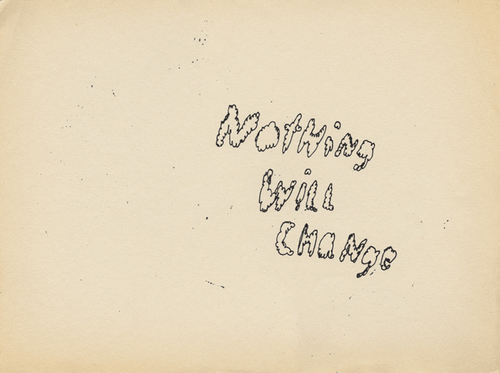 Nothing
Will
Change